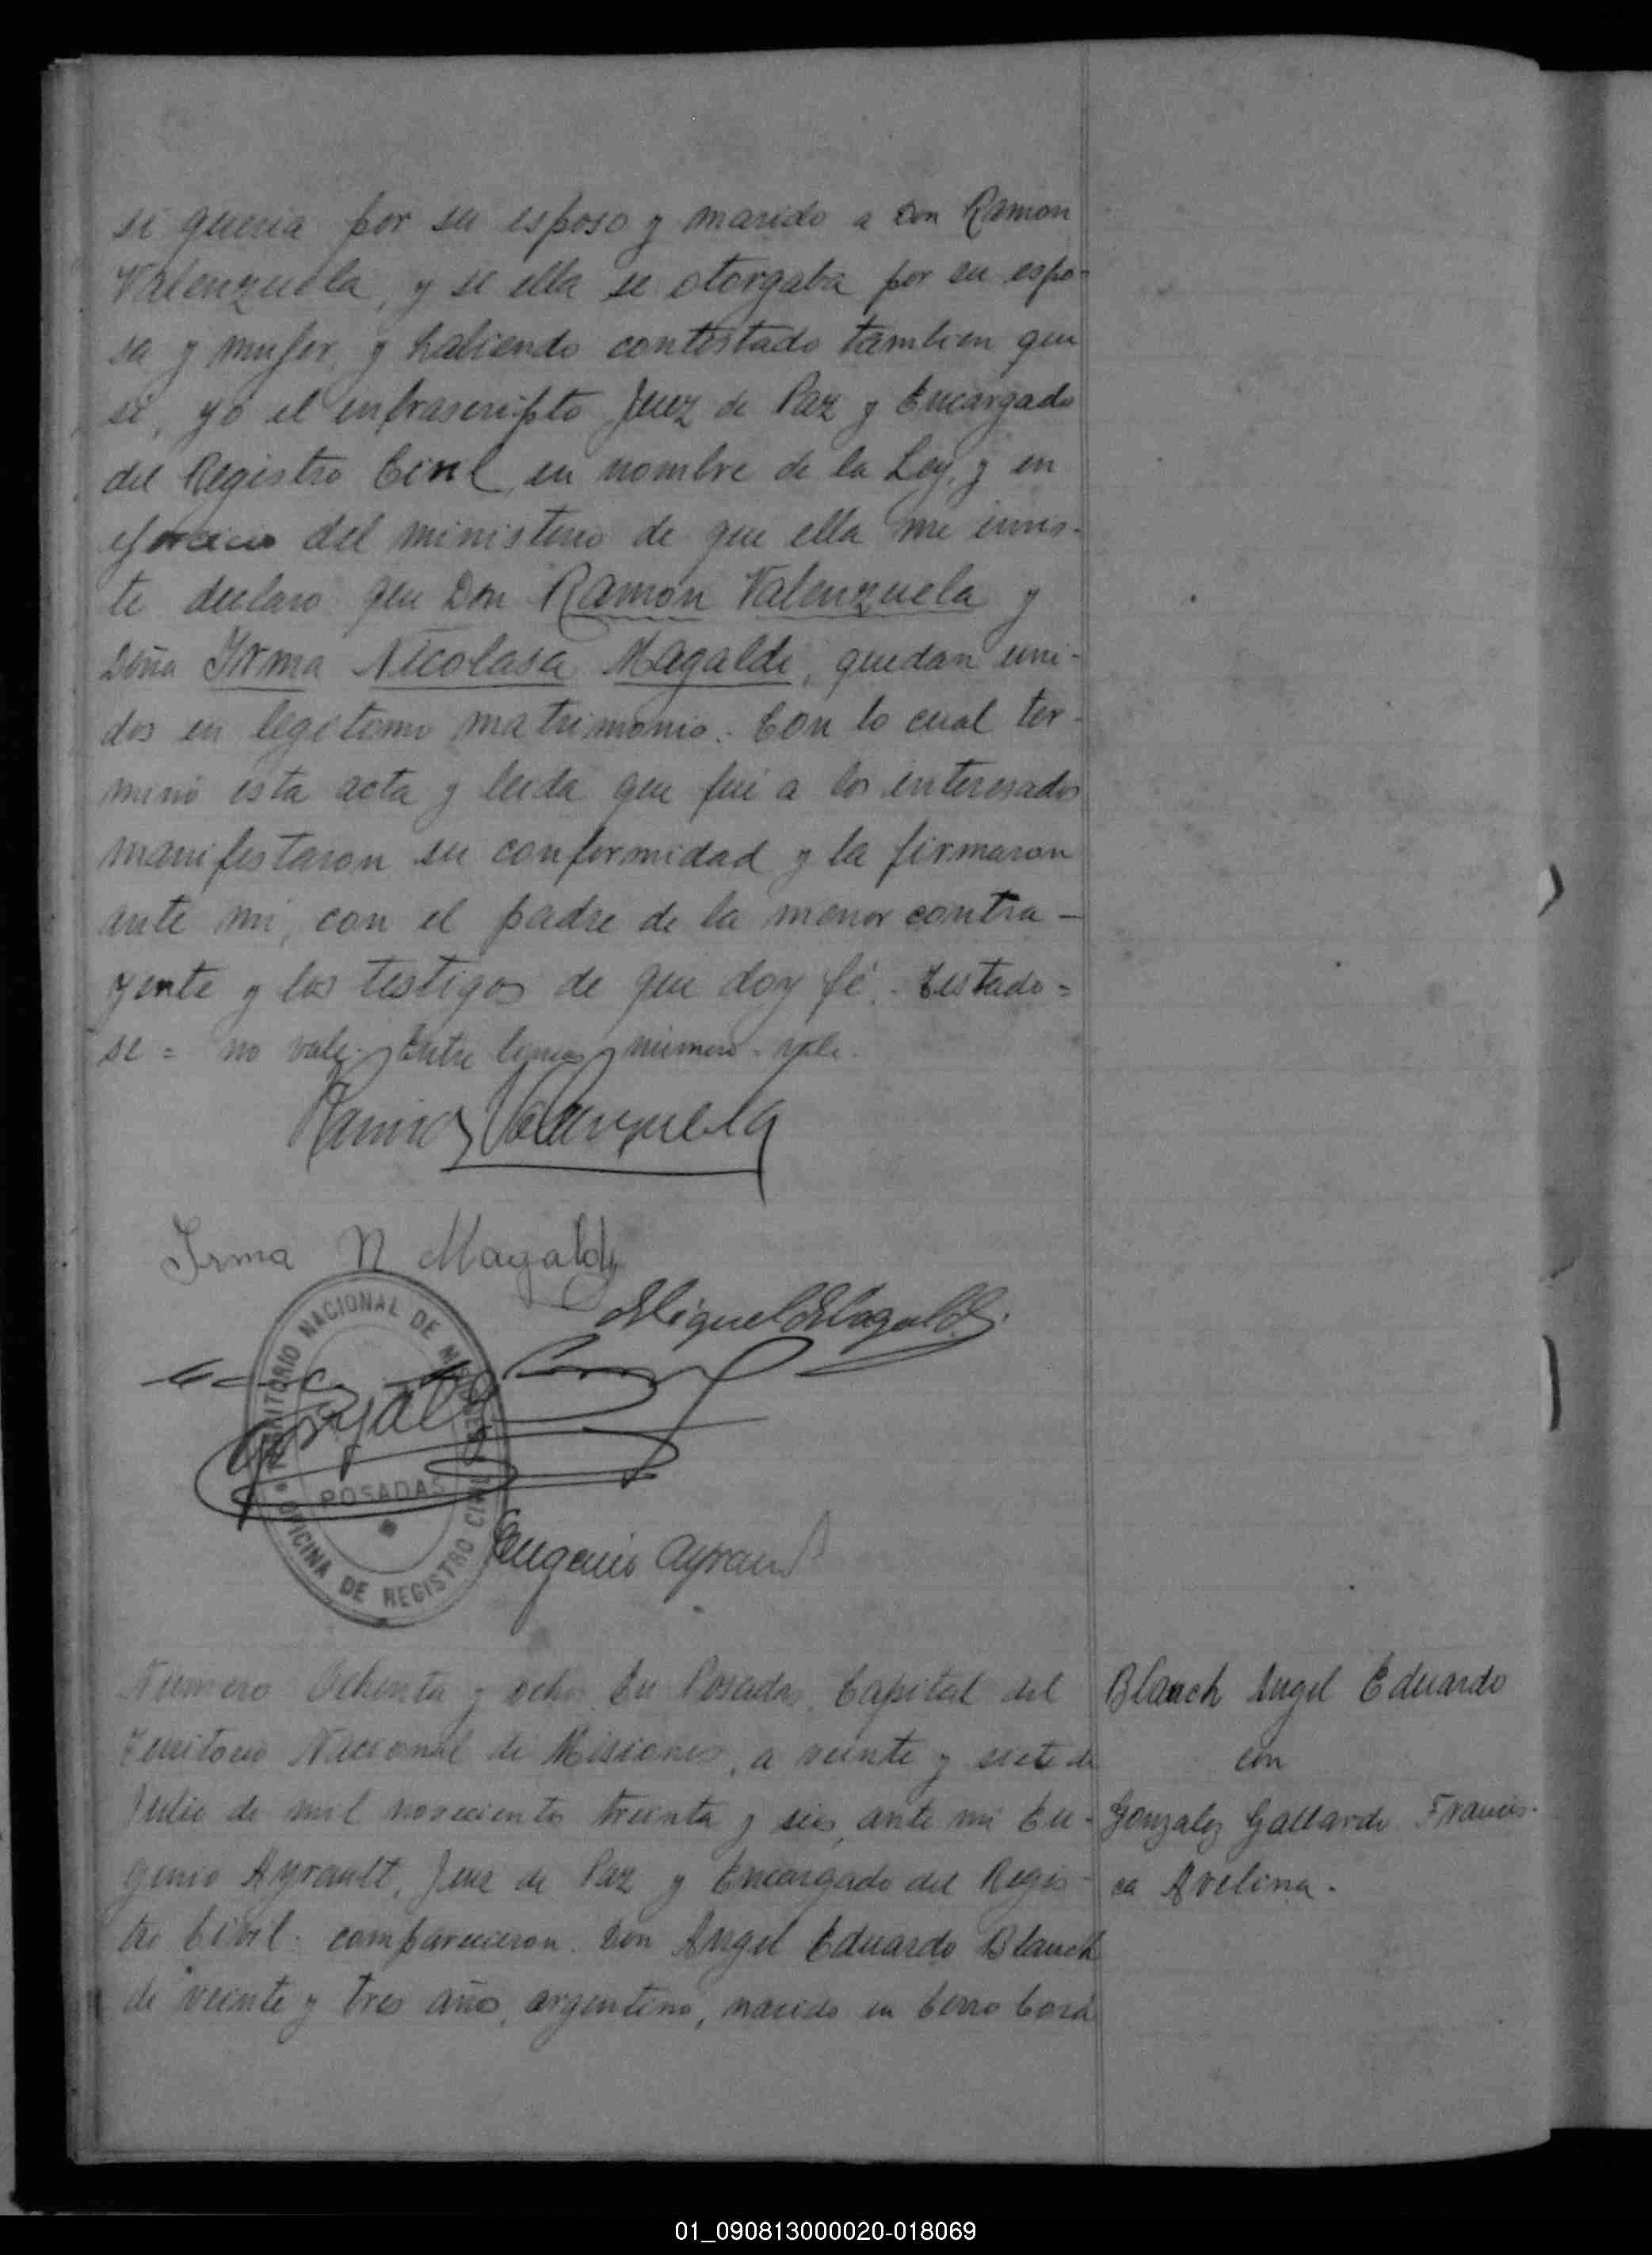 si queria por su esposo y marido a Don Ramon
Valenzuela, y si ella se otorgaba por su espo-
sa y mujer, y habiendo contestado tambien que
si, yo el infrascripto Juez de Paz y Encargado
del Registro Civil, en nombre de la Ley, y en
ejercicio del ministerio de que ella me invis-
te declaro que Don Ramon Valenzuela y
Doña Irma Nicolasa Magaldi, quedan uni-
dos en legitimo matrimonio. Con lo cual ter-
minó esta acta y leida que fué a los interesados
manifestaron su conformidad y la firmaron
ante mi, con el padre de la menor contra-
yente y los testigos de que doy fé. Testado =
se = no vale. Entre lineas número - vale.
Ramon Valenzuela
Irma N Magaldi
Miguel Magaldi
TERRITORIO NACIONAL DE MISIONES
POSADAS
OFICINA DE REGISTRO CIVIL
Eugenio Ayrault
Número Ochenta y ocho. En Posadas, Capital del
Territorio Nacional de Misiones, a veinte y siete de
Julio de mil novecientos treinta y seis, ante mi Eu-
genio Ayrault, Juez de Paz y Encargado del Regis-
tro Civil. comparecieron. Don Angel Eduardo Blanch
de veinte y tres años, argentino, nacido en Cerro Corá
Blanch Angel Eduardo
con
Gonzalez Gallardo Francis-
ca Avelina.
01_090813000020-018069